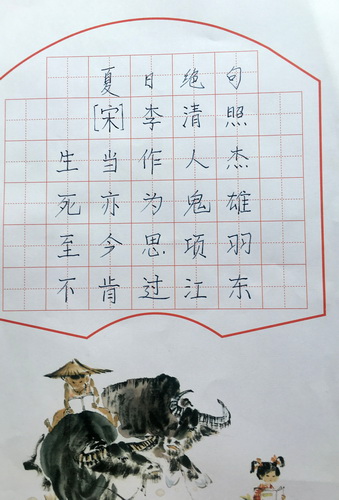 夏日绝句
[宋]李清照
生当作人杰
死亦为鬼雄
至今思项羽
不肯过江东